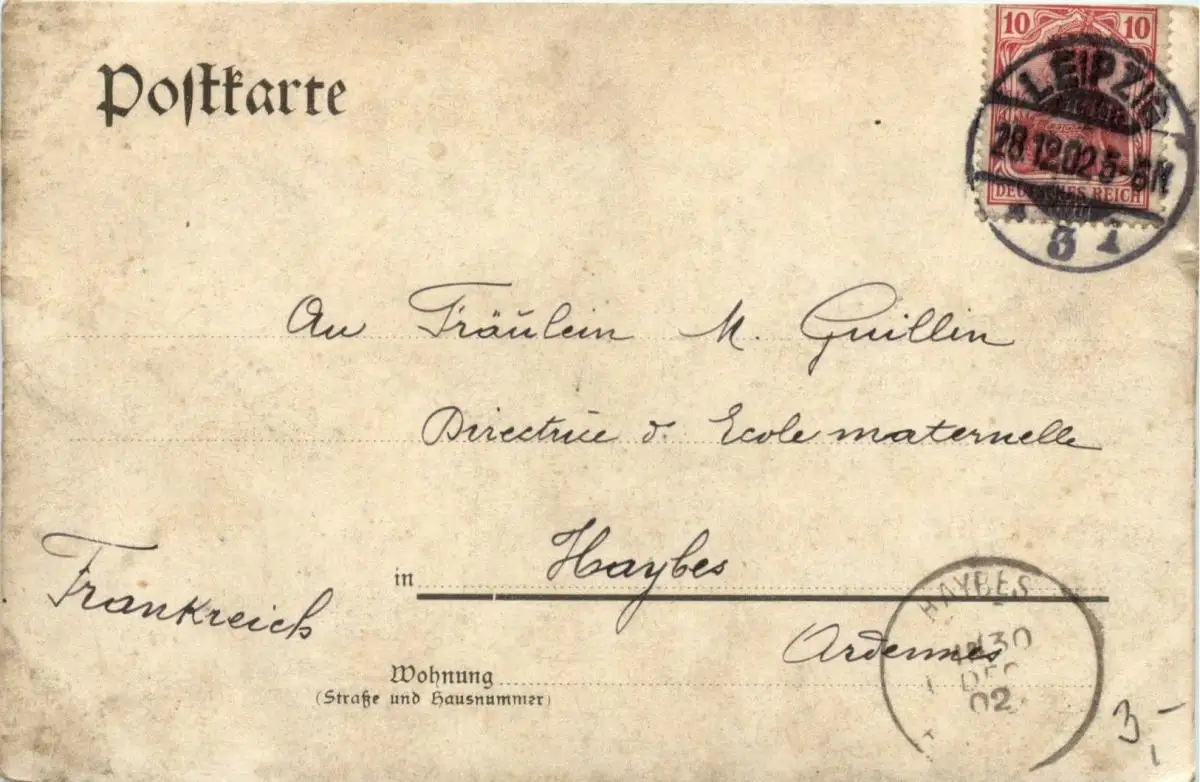 Postkarte
10 10
LEIPZIG
28.12.02 5-6N
DEUTSCHES REICH
3
An Fräulein M. Guillin
Directrice d. Ecole maternelle
in Haybes
Frankreich
Ardennes
HAYBES
30
DEC
02
Wohnung
(Straße und Hausnummer)
3,-